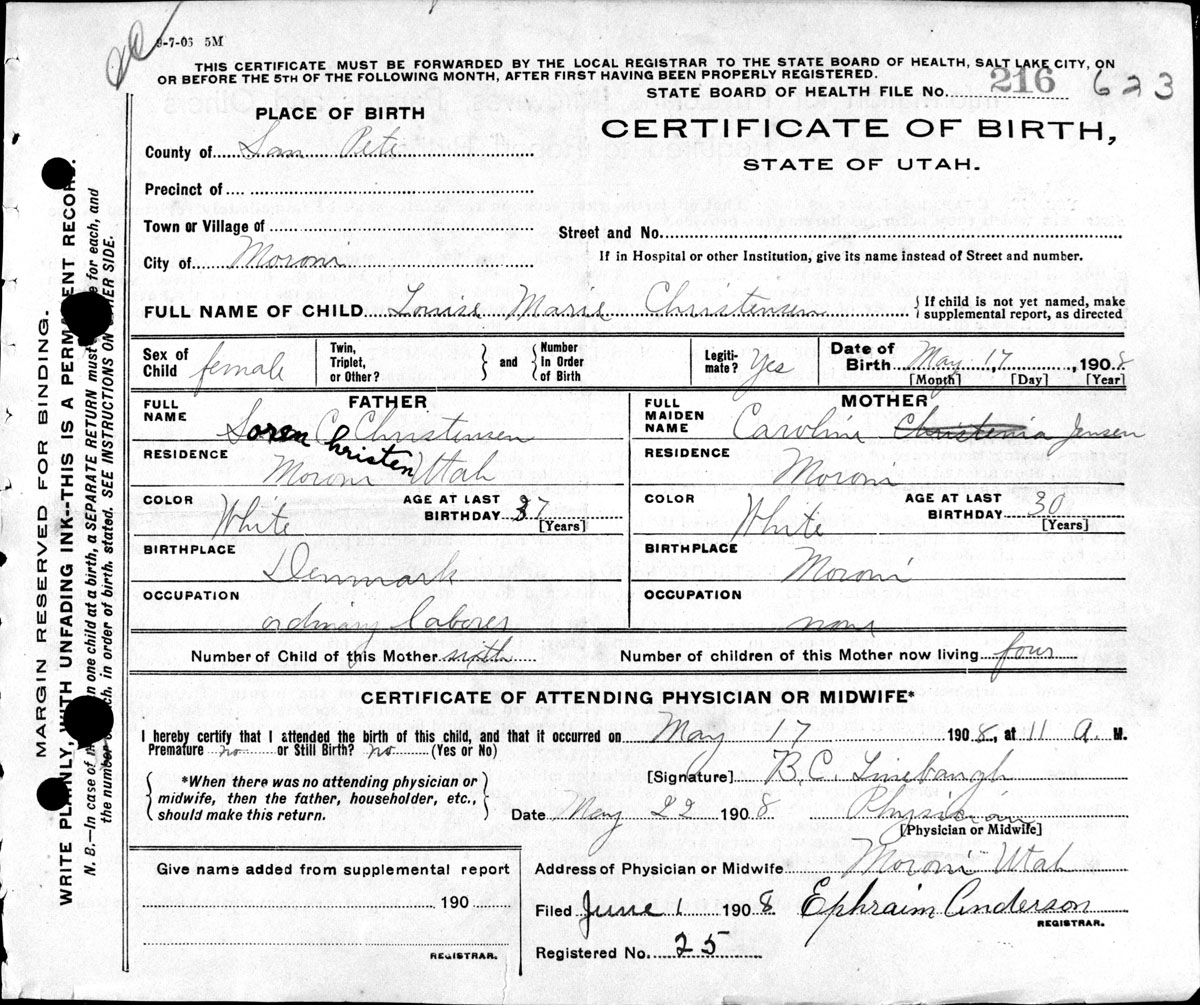 9-7-06 5M
THIS CERTIFICATE MUST BE FORWARDED BY THE LOCAL REGISTRAR TO THE STATE BOARD OF HEALTH, SALT LAKE CITY, ON
OR BEFORE THE 5TH OF THE FOLLOWING MONTH, AFTER FIRST HAVING BEEN PROPERLY REGISTERED.
STATE BOARD OF HEALTH FILE NO. 216 623
PLACE OF BIRTH
CERTIFICATE OF BIRTH,
STATE OF UTAH.
County of San Pete
Precinct of
Town or Village of
Street and No.
City of Moroni
If in Hospital or other Institution, give its name instead of Street and number.
FULL NAME OF CHILD Louise Marie Christensen { If child is not yet named, make supplemental report, as directed
Sex of Child female Twin, Triplet, or Other? } and { Number In Order of Birth Legiti-mate? Yes Date of Birth May 17, 1908
[Month] [Day] [Year]
FATHER
FULL NAME Soren C Christensen
Christen
RESIDENCE Moroni Utah
COLOR White AGE AT LAST BIRTHDAY 37 [Years]
BIRTHPLACE Denmark
OCCUPATION ordinary laborer
MOTHER
FULL MAIDEN NAME Caroline Christenia Jensen
RESIDENCE Moroni
COLOR White AGE AT LAST BIRTHDAY 30 [Years]
BIRTHPLACE Moroni
OCCUPATION none
Number of Child of this Mother sixth Number of children of this Mother now living four
CERTIFICATE OF ATTENDING PHYSICIAN OR MIDWIFE*
I hereby certify that I attended the birth of this child, and that it occurred on May 17 1908, at 11 A. M.
Premature no or Still Birth? no (Yes or No)
*When there was no attending physician or
midwife, then the father, householder, etc.,
should make this return.
[Signature] B.C. Linebaugh
Date May 22 1908 Physician
[Physician or Midwife]
Give name added from supplemental report
190
REGISTRAR.
Address of Physician or Midwife Moroni Utah
Filed June 1 1908 Ephraim Anderson
REGISTRAR.
Registered No. 25
MARGIN RESERVED FOR BINDING.
WRITE PLAINLY, WITH UNFADING INK--THIS IS A PERMANENT RECORD.
N. B.—In case of more than one child at a birth, a SEPARATE RETURN must be made for each, and
the number of each, in order of birth, stated. SEE INSTRUCTIONS ON OTHER SIDE.